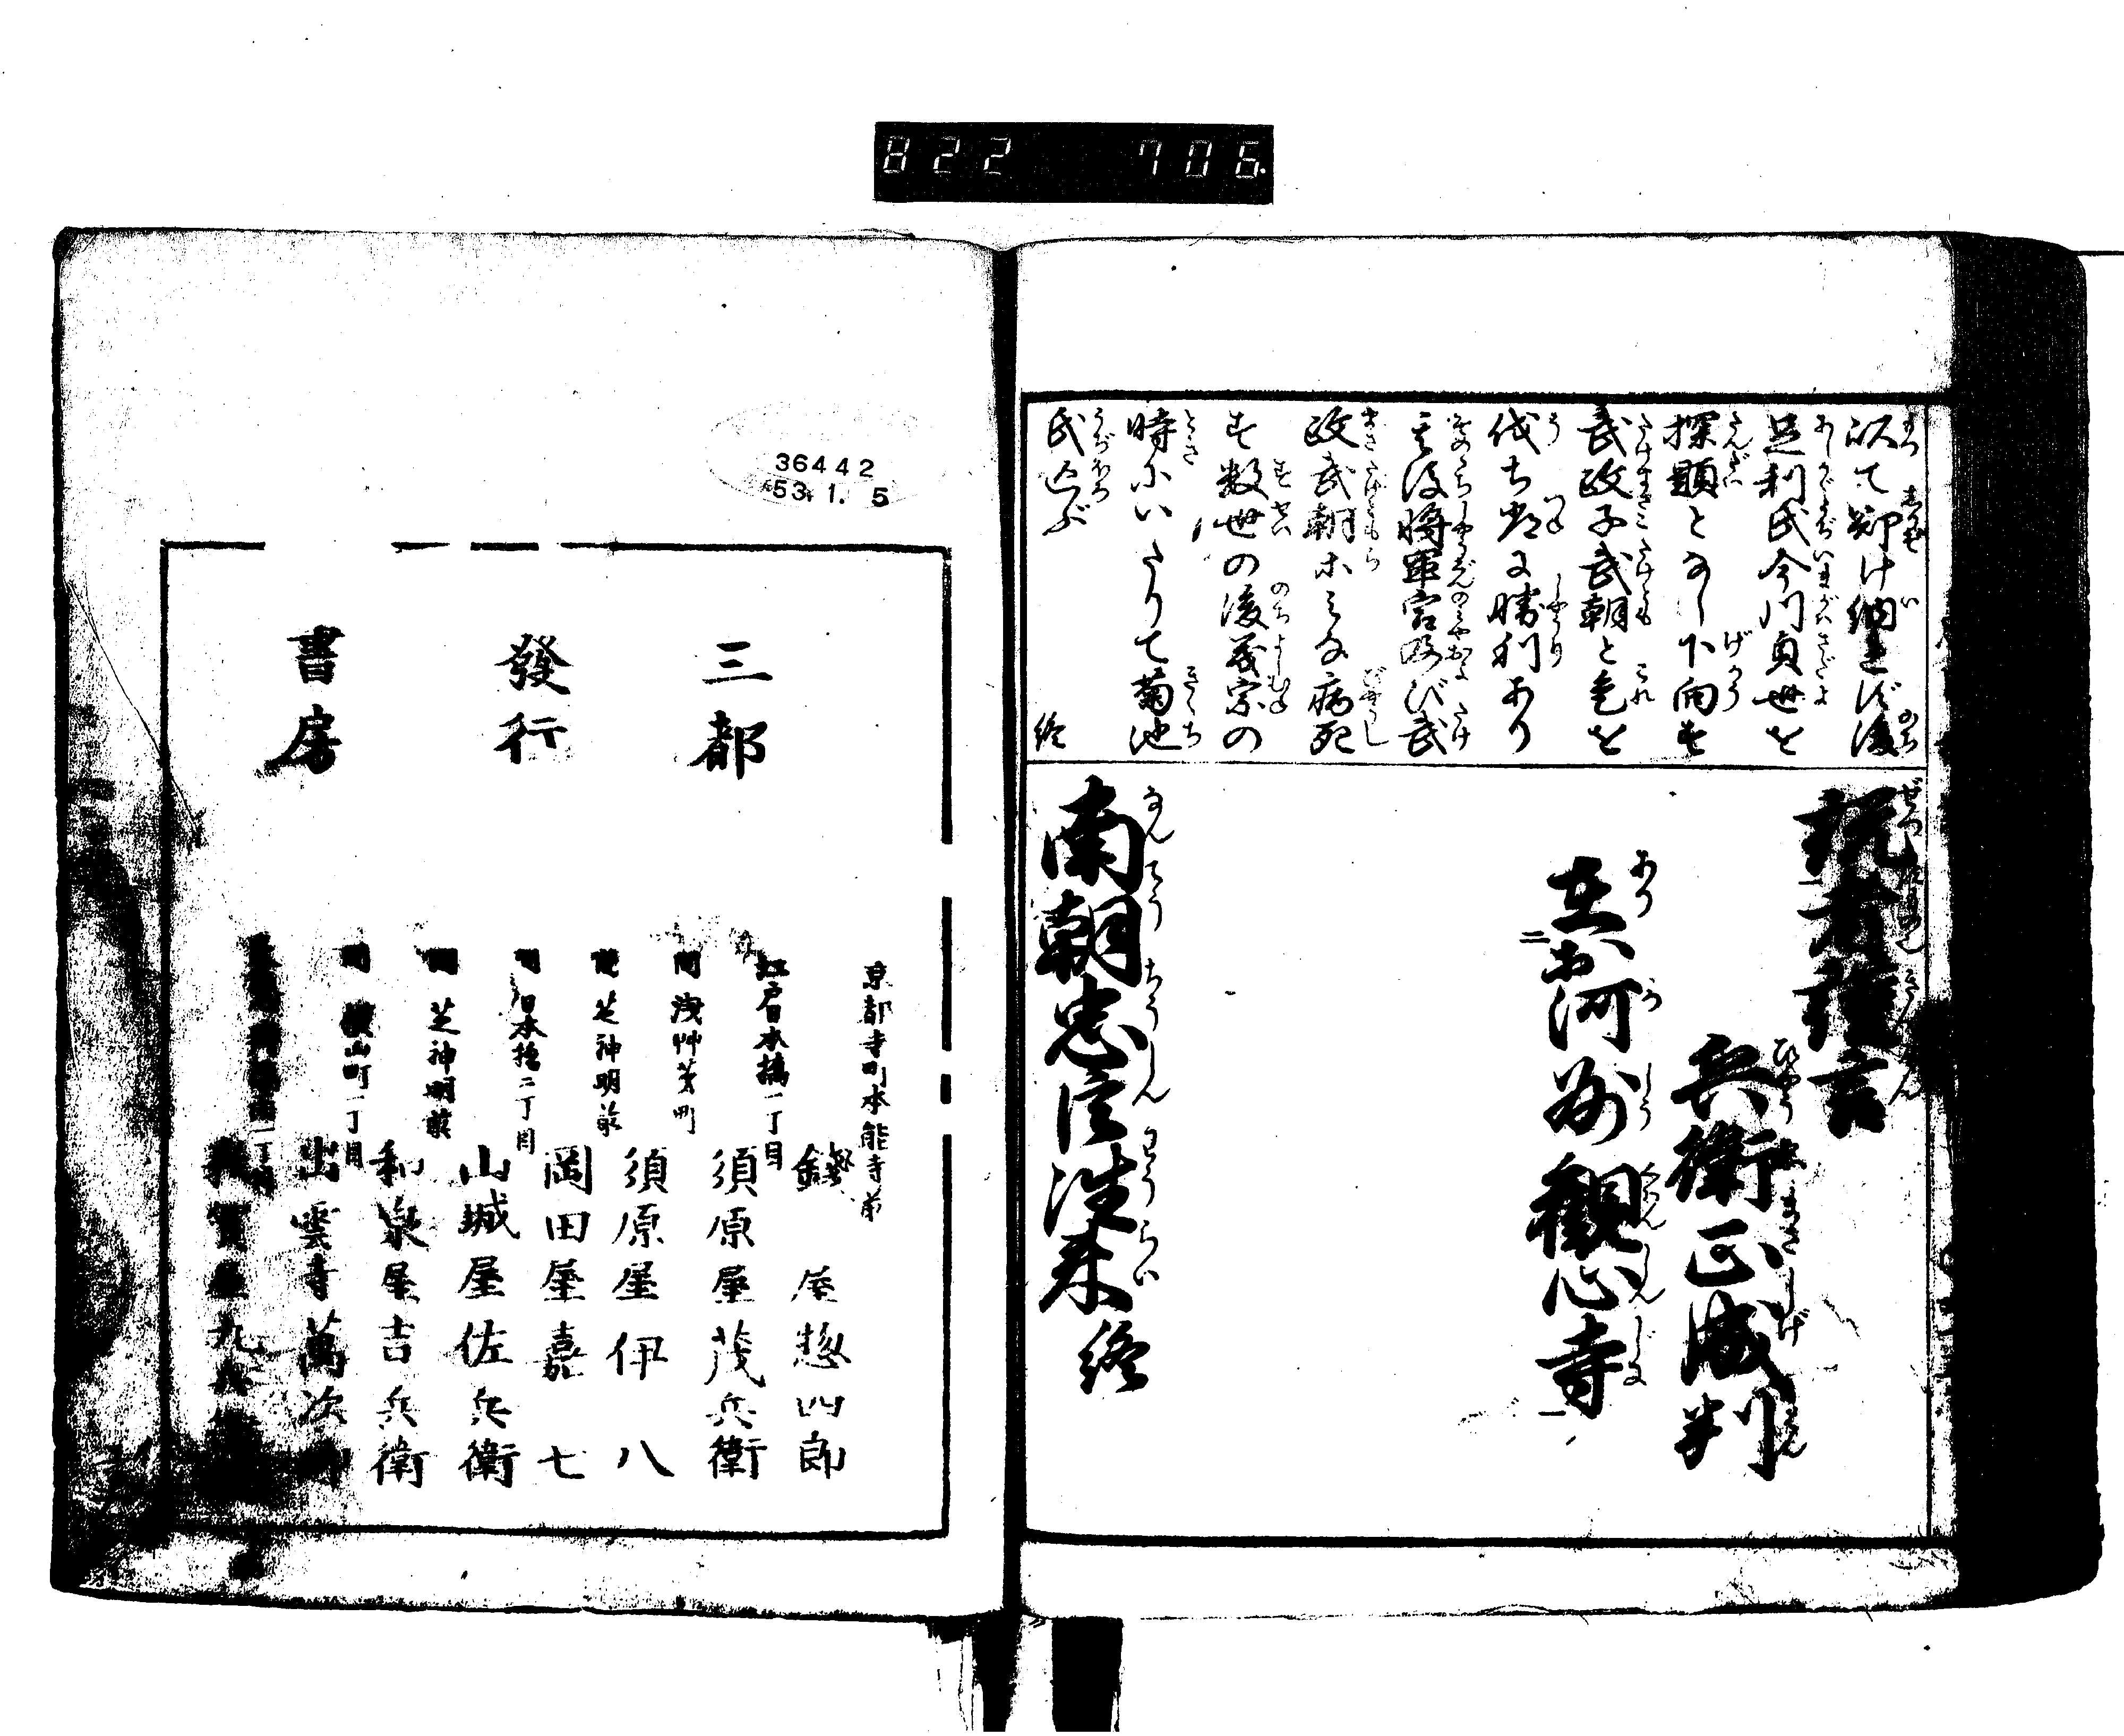 822 706
以て郷け納れず後
足利氏今川貞世を
探題となし下向す
武政子武朝と是を
伐ち常に勝利あり
其後将軍宮及び武
政武朝ホみな病死
す数世の後義宗の
時にいたりて菊池
氏亡ぶ
終
説者謹言
兵衛正成判
在于河州観心寺
南朝忠臣往来終
36442
53. 1. 5
三都
發行
書房
京都寺町本能寺前
錢屋惣四郎
江戸日本橋一丁目
須原屋茂兵衛
同浅艸茅町
須原屋伊八
同芝神明前
岡田屋嘉七
同日本橋二丁目
山城屋佐兵衛
同芝神明前
和泉屋吉兵衛
同横山町一丁目
出雲寺萬次郎